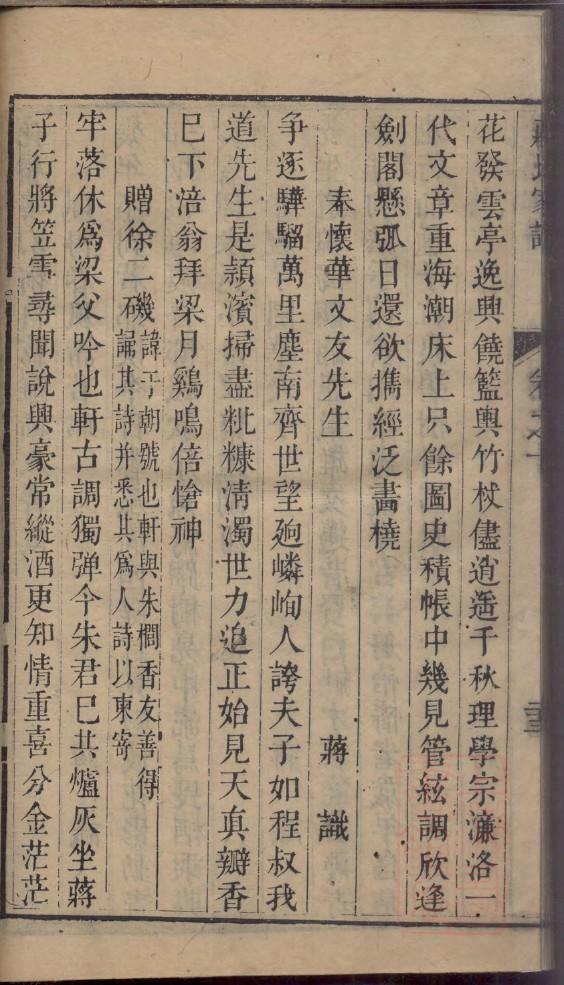 花發雲亭逸興饒籃輿竹杖儘逍遥千秋理學宗濂洛一
代文章重海潮床上只餘圖史積帳中幾見管絃調欣逢
劍閣懸弧日還欲携經泛畵橈
奉懷華文友先生
蔣識
争逐驊騮萬里塵南齊世望逈嶙峋人誇夫子如程叔我
道先生是潁濱掃盡粃糠淸濁世力追正始見天真瓣香
巳下涪翁拜梁月鷄鳴倍愴神
贈徐二磯
諱于朝號也軒與朱櫚香友善得
誦其詩并悉其爲人詩以柬寄
牢落休爲梁父吟也軒古調獨弹今朱君巳共爐灰坐蔣
子行將笠雪尋聞說興豪常縱酒更知情重喜分金茫茫
卷之一